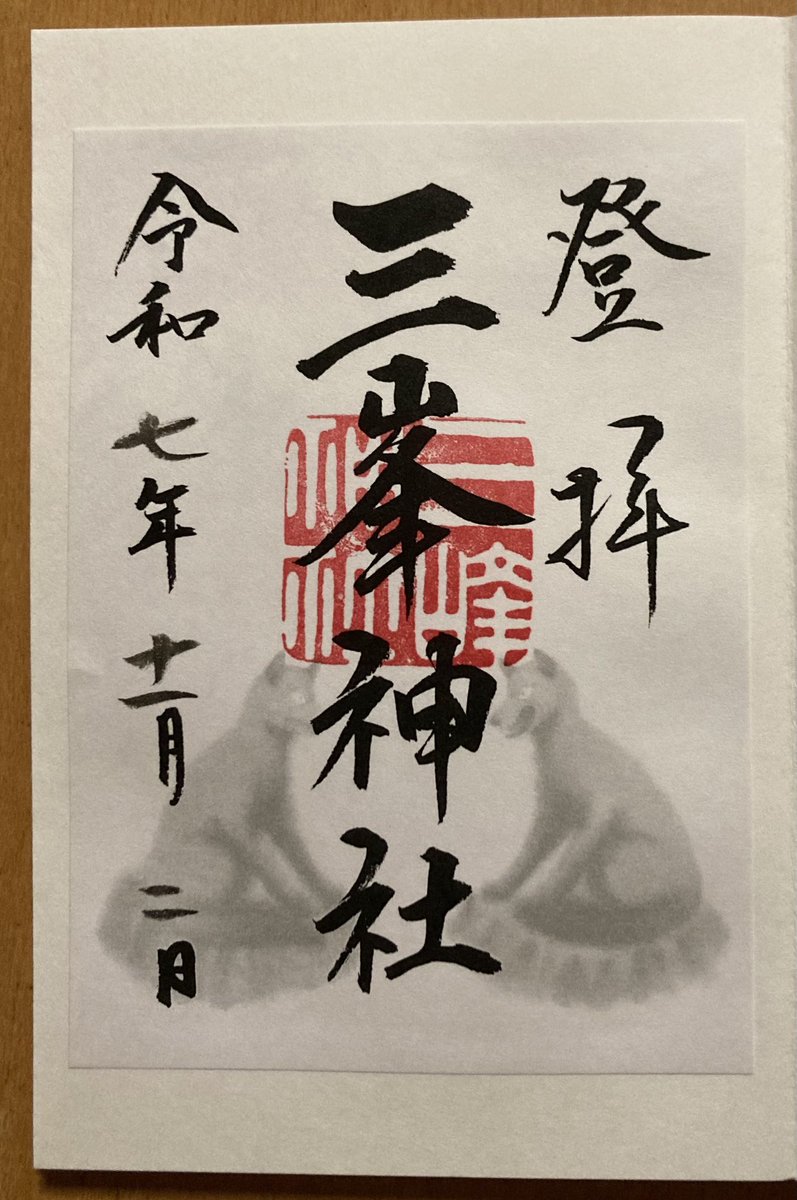 登拝
三峯神社
三峰神社
令和七年十一月二日